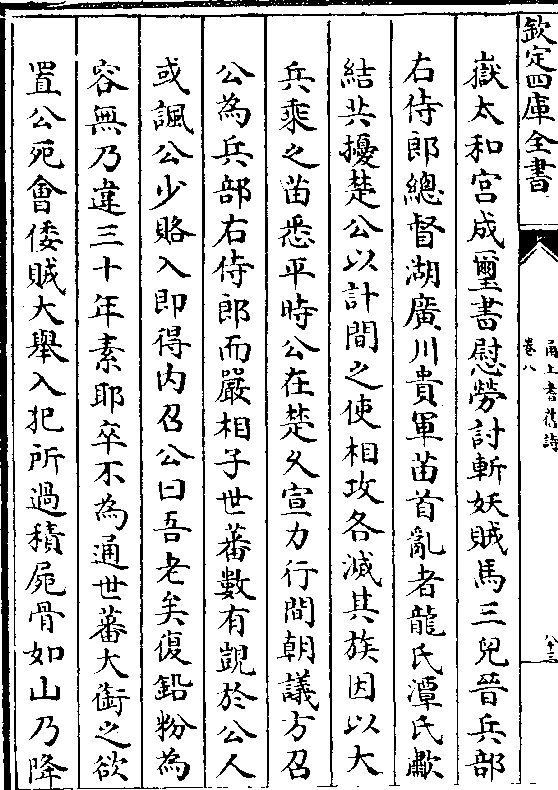 欽定四庫全書
甬上耆舊詩
卷八
嶽太和宮成璽書慰勞討斬妖賊馬三兒晉兵部
右侍郎總督湖廣川貴軍苗首亂者龍氏潭氏歃
結共擾楚公以計間之使相攻各滅其族因以大
兵乘之苗悉平時公在楚久宣力行間朝議方召
公為兵部右侍郎而嚴相子世蕃數有覬於公人
或諷公少賂入即得內召公曰吾老矣復鉛粉為
容無乃違三十年素耶卒不為通世蕃大銜之欲
置公死會倭賊大舉入犯所過積屍骨如山乃降